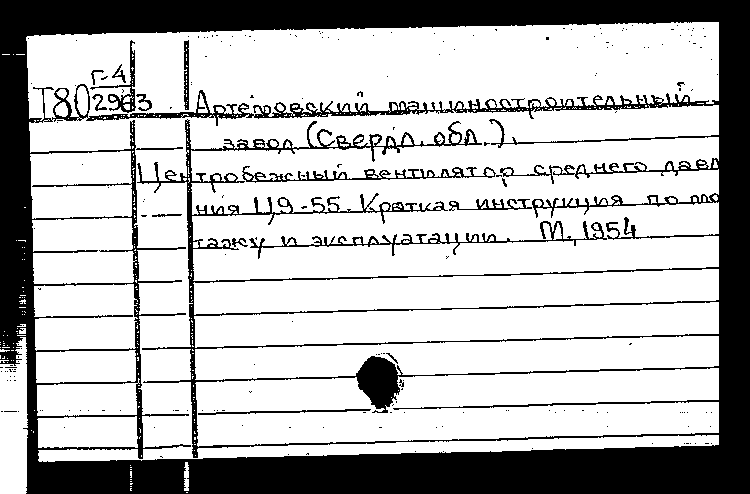 Г-4
Т80 2963 Артемовский машиностроительный
завод (Свердл. обл.).
Центробежный вентилятор среднего давл
ния Ц9-55. Краткая инструкция по мо
тажу и эксплуатации. М., 1954